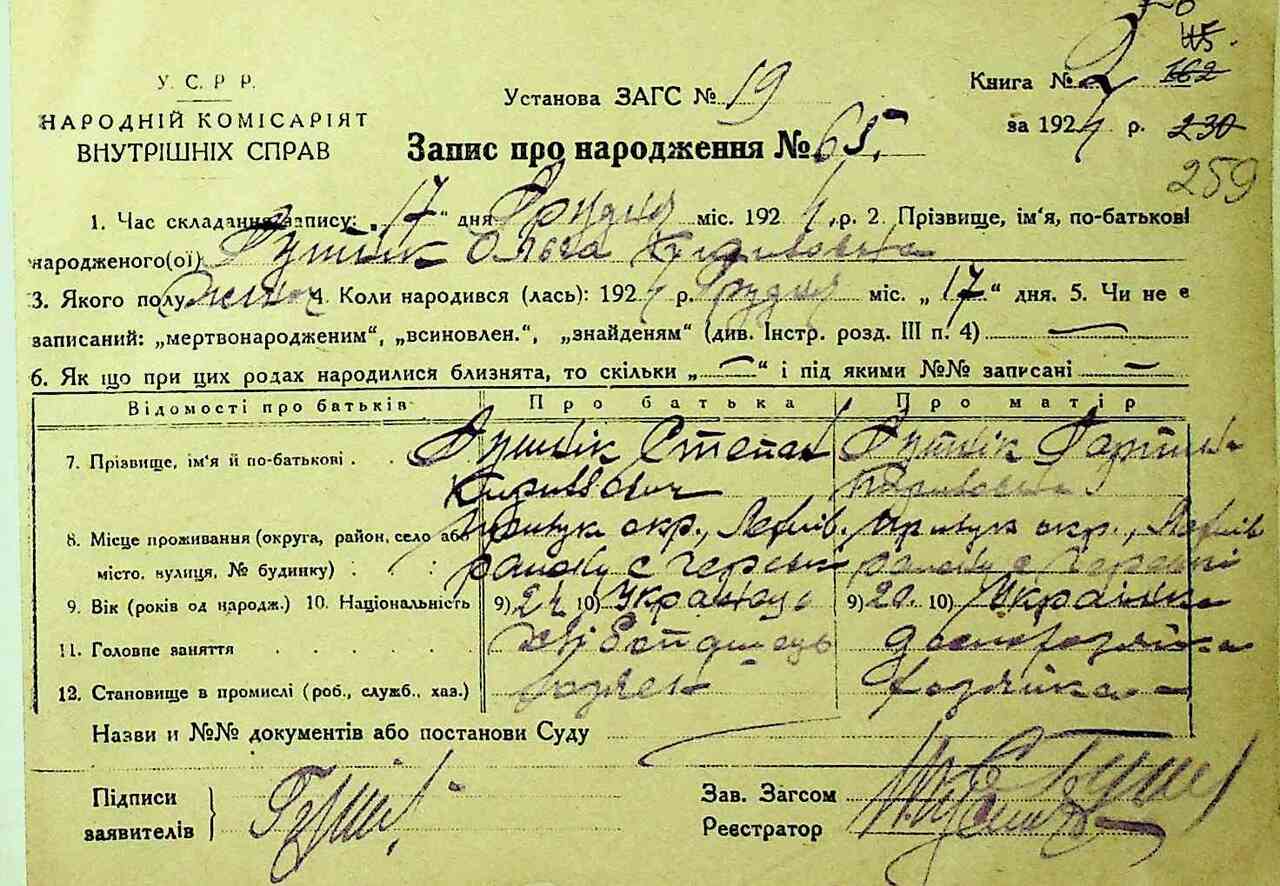 У. С. Р Р.
НАРОДНІЙ КОМІСАРІЯТ
ВНУТРІШНІХ СПРАВ
Установа ЗАГС № 19
Книга № 2
45.
162
за 1924 р. 230
259
Запис про народження № 65.
1. Час складання запису: „17“ дня Грудня міс. 1924 р. 2. Прізвище, ім'я, по-батькові
народженого(ої) Ольга
3. Якого полу жіноч 4. Коли народився (лась): 1924 р. Грудня міс. „17“ дня. 5. Чи не є
записаний: „мертвонародженим“, „всиновлен.“, „знайденям“ (див. Інстр. розд. III п. 4)
6. Як що при цих родах народилися близнята, то скільки „—“ і під якими №№ записані —
Відомості про батьків Про батька Про матір
7. Прізвище, ім'я й по-батькові Степан
Кирилович
8. Місце проживання (округа, район, село або Прилук окр., Прилук окр.,
місто, вулиця, № будинку) району с району с
9. Вік (років од народж.) 10. Національність 9) 24 10) Українець 9) 20. 10) Українка
11. Головне заняття Хлібопашець домохозяйка
12. Становище в промислі (роб., служб., хаз.) хозяйка
Назви и №№ документів або постанови Суду
Підписи
заявителів
Зав. Загсом
Реєстратор